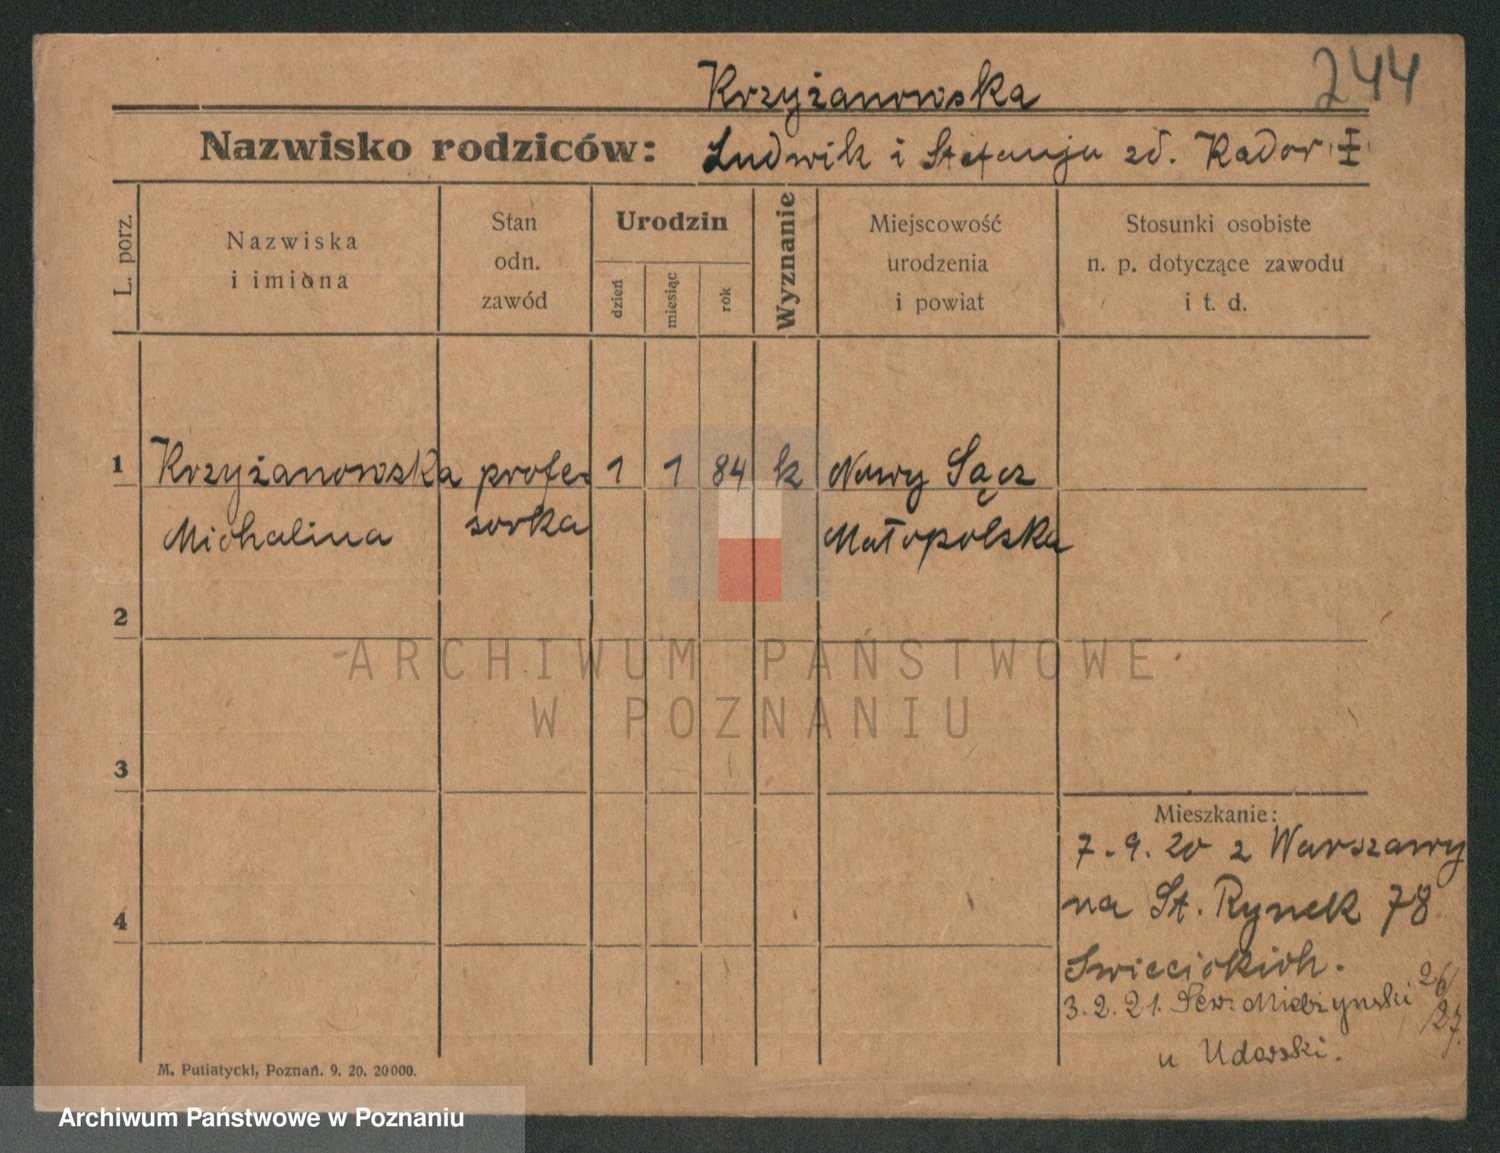 244
Krzyżanowska
Nazwisko rodziców: Ludwik i Stefanja zd. Kador I
L. porz.
Nazwiska
i imiona
Stan
odn.
zawód
Urodzin
dzień
miesiąc
rok
Wyznanie
Miejscowość
urodzenia
i powiat
Stosunki osobiste
n. p. dotyczące zawodu
i t. d.
1 Krzyżanowska profe- 1 1 84 k Nowy Sącz
Michalina sorka Małopolska
2
3
4
ARCHIWUM PAŃSTWOWE
W POZNANIU
Mieszkanie:
7.9.20 z Warszawy
na St. Rynek 78
Swiecickich.
3.2.21. Sew. Mielżynski 26/27.
u Udarski.
M. Putiatycki, Poznań. 9. 20. 20000.
Archiwum Państwowe w Poznaniu